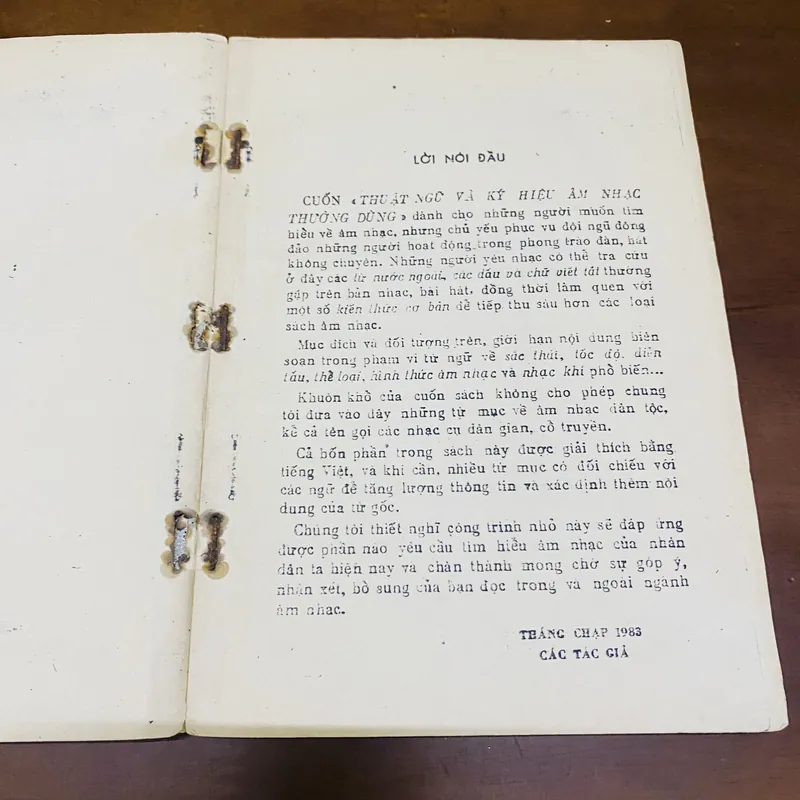 LỜI NÓI ĐẦU
CUỐN «THUẬT NGỮ VÀ KÝ HIỆU ÂM NHẠC
THƯỜNG DÙNG» dành cho những người muốn tìm
hiểu về âm nhạc, nhưng chủ yếu phục vụ đội ngũ đông
đảo những người hoạt động trong phong trào đàn, hát
không chuyên. Những người yêu nhạc có thể tra cứu
ở đây các từ nước ngoài, các dấu và chữ viết tắt thường
gặp trên bản nhạc, bài hát, đồng thời làm quen với
một số kiến thức cơ bản để tiếp thu sâu hơn các loại
sách âm nhạc.
Mục đích và đối tượng trên, giới hạn nội dung biên
soạn trong phạm vi từ ngữ về sắc thái, tốc độ, diễn
tấu, thể loại, hình thức âm nhạc và nhạc khí phổ biến...
Khuôn khổ của cuốn sách không cho phép chúng
tôi đưa vào đây những từ mục về âm nhạc dân tộc,
kể cả tên gọi các nhạc cụ dân gian, cổ truyền.
Cả bốn phần trong sách này được giải thích bằng
tiếng Việt, và khi cần, nhiều từ mục có đối chiếu với
các ngữ để tăng lượng thông tin và xác định thêm nội
dung của từ gốc.
Chúng tôi thiết nghĩ công trình nhỏ này sẽ đáp ứng
được phần nào yêu cầu tìm hiểu âm nhạc của nhân
dân ta hiện nay và chân thành mong chờ sự góp ý,
nhận xét, bổ sung của bạn đọc trong và ngoài ngành
âm nhạc.
THÁNG CHẠP 1983
CÁC TÁC GIẢ